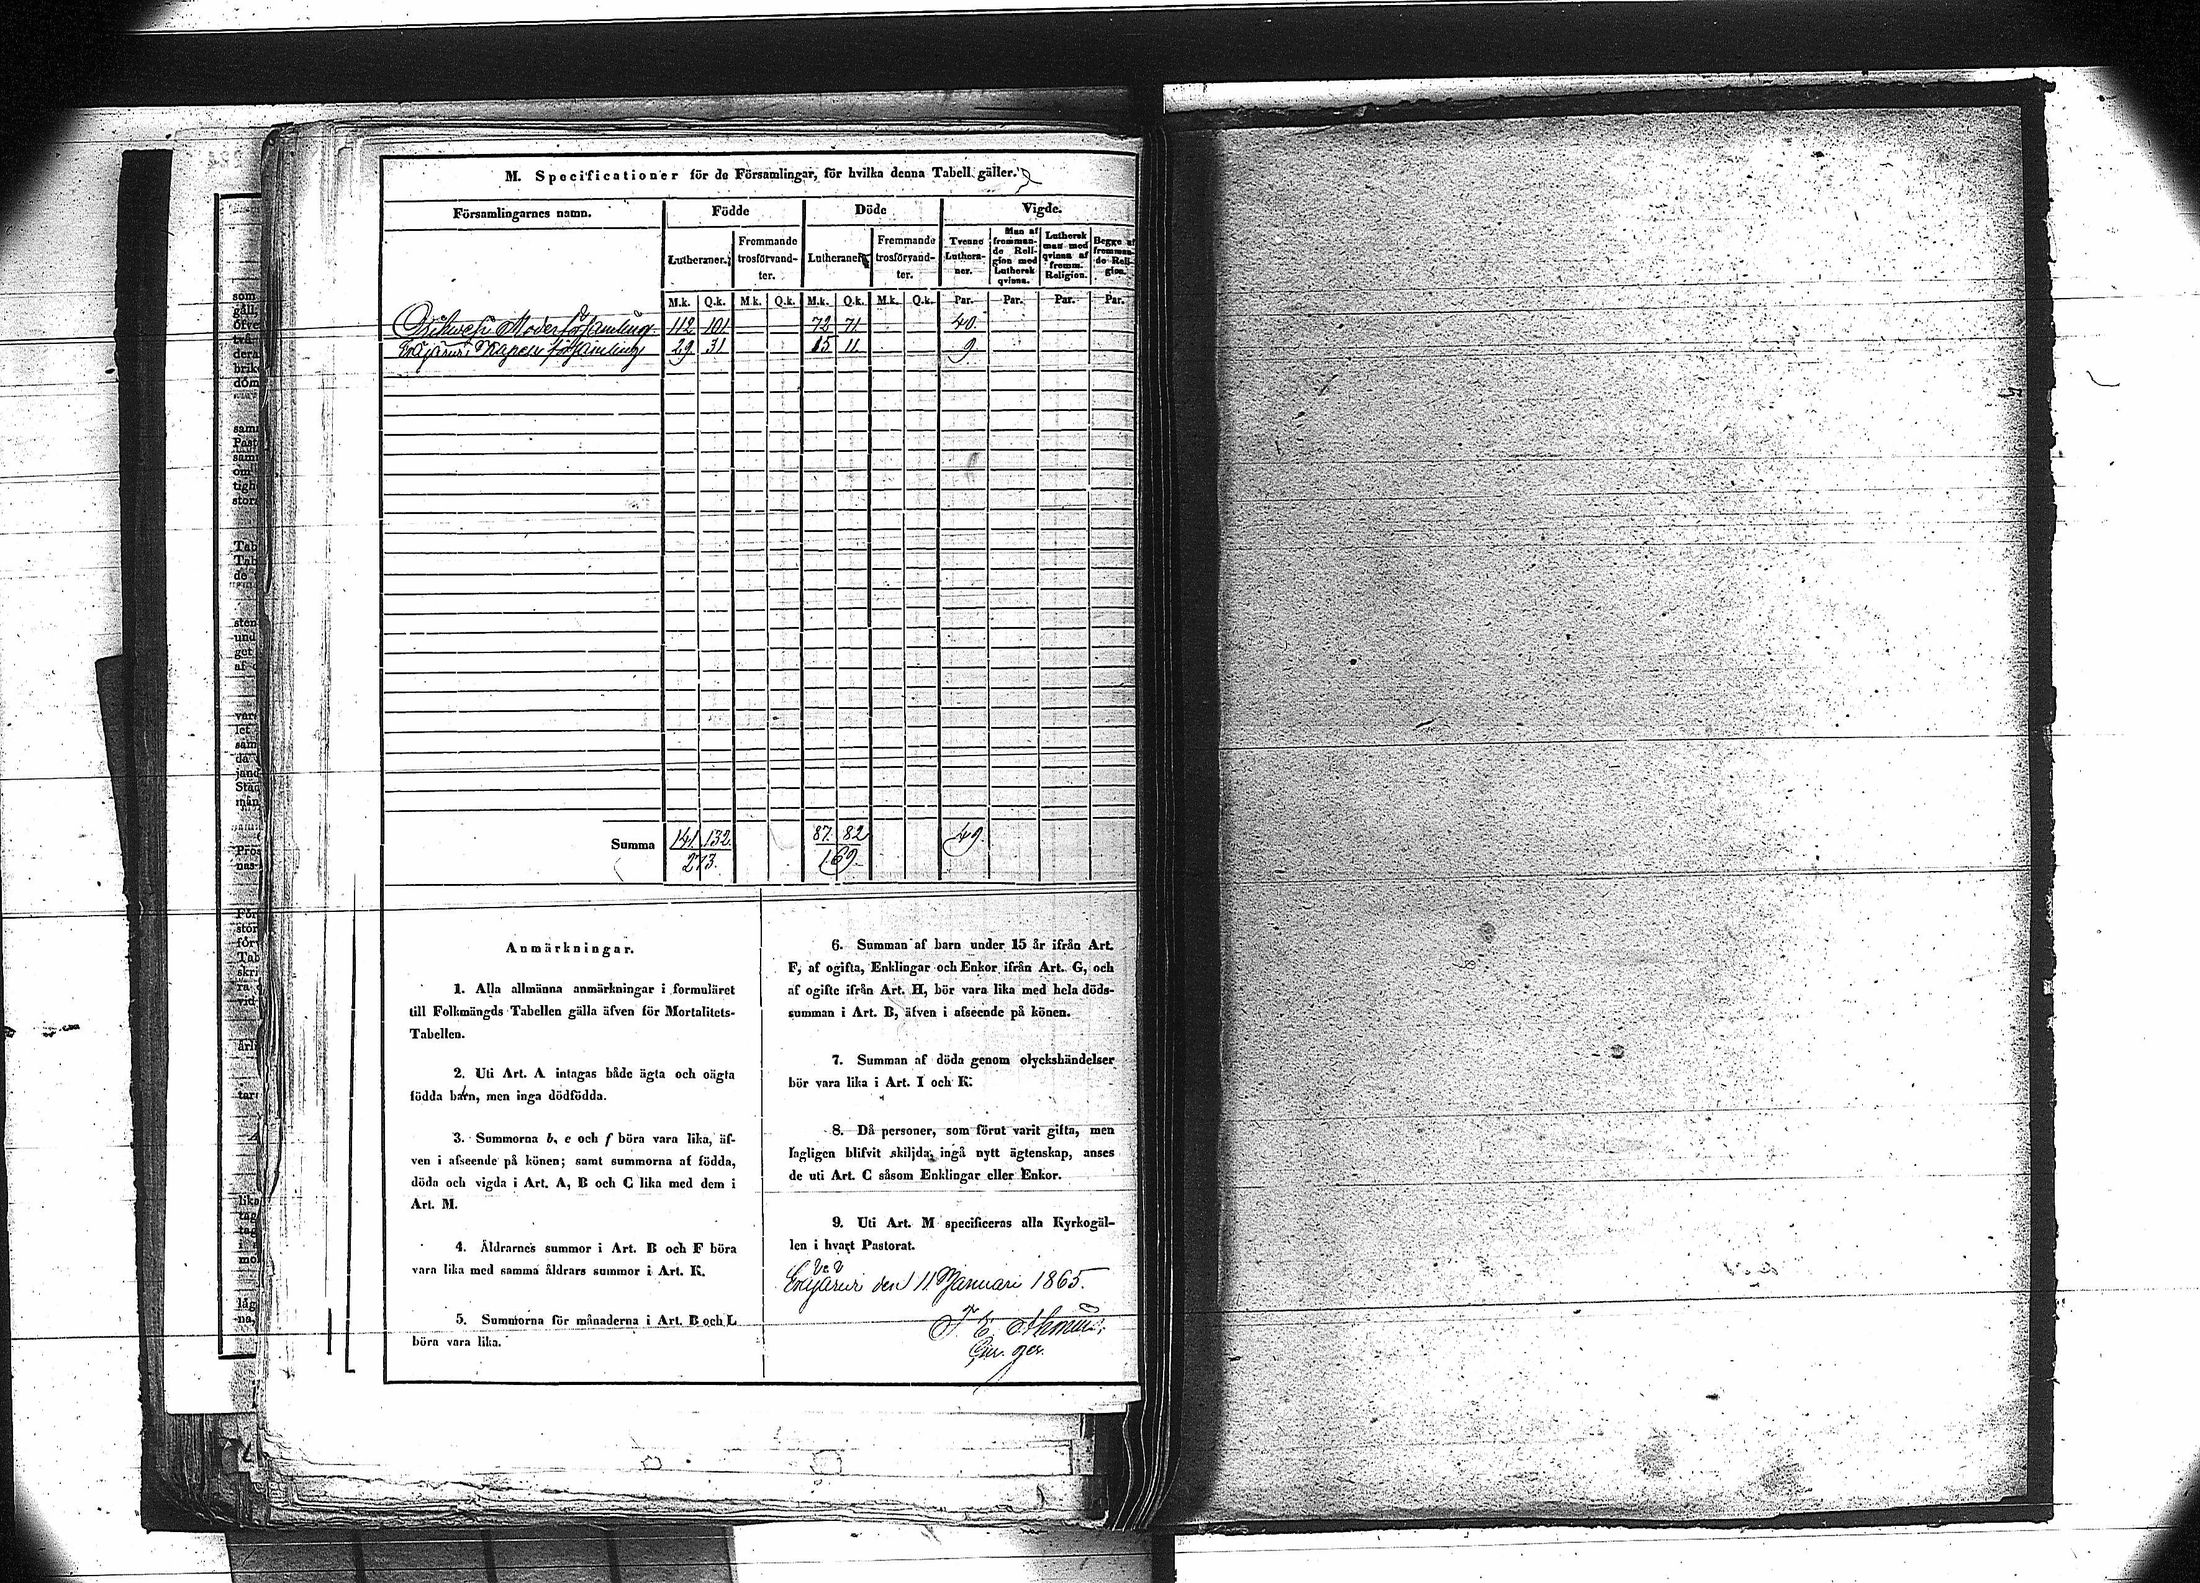 M. Specificationer för de Församlingar, för hvilka denna Tabell gäller.
Församlingarnes namn.
Födde
Döde
Vigde.
Lutheraner.
Fremmande trosförvandter.
Lutheraner.
Fremmande trosförvandter.
Tvenne Lutheraner.
Man af fremmande Religion med Luthersk qvinna.
Luthersk man med qvinna af fremm. Religion.
Begge af fremmande Religion.
M.k. Q.k. M.k. Q.k. M.k. Q.k. M.k. Q.k. Par. Par. Par. Par.
Moderförsamling 112 101 72 71 40.
Eräjärvi Kapell församling 29 31 15 11 9.
Summa 141 132. 87. 82 49.
273. 169.
Anmärkningar.
1. Alla allmänna anmärkningar i formuläret
till Folkmängds Tabellen gälla äfven för Mortalitets-
Tabellen.
2. Uti Art. A intagas både ägta och oägta
födda barn, men inga dödfödda.
3. Summorna b, e och f böra vara lika, äf-
ven i afseende på könen; samt summorna af födda,
döda och vigda i Art. A, B och C lika med dem i
Art. M.
4. Åldrarnes summor i Art. B och F böra
vara lika med samma åldrars summor i Art. K.
5. Summorna för månaderna i Art. B och L
böra vara lika.
6. Summan af barn under 15 år ifrån Art.
F, af ogifta, Enklingar och Enkor ifrån Art. G, och
af ogifte ifrån Art. H, bör vara lika med hela döds-
summan i Art. B, äfven i afseende på könen.
7. Summan af döda genom olyckshändelser
bör vara lika i Art. I och K.
8. Då personer, som förut varit gifta, men
lagligen blifvit skiljda, ingå nytt ägtenskap, anses
de uti Art. C såsom Enklingar eller Enkor.
9. Uti Art. M specificeras alla Kyrkogäl-
len i hvart Pastorat.
Eräjärvi den 11 Januari 1865.